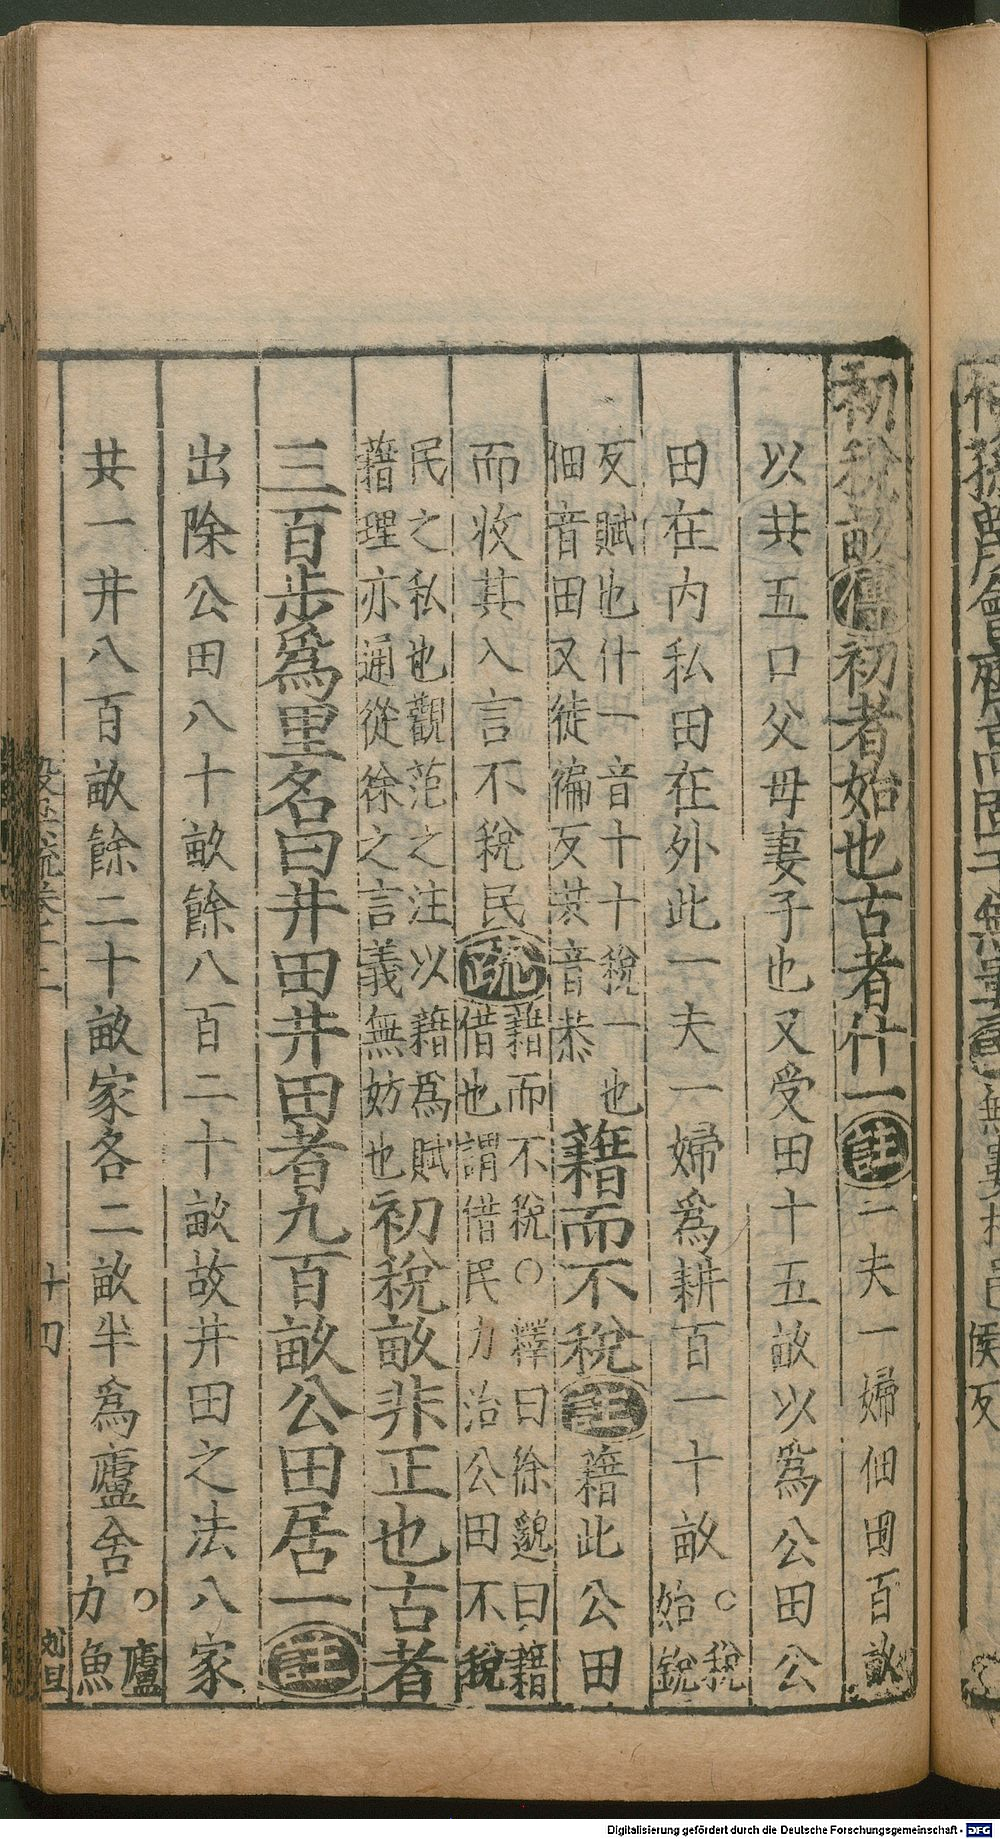 孫蔑會齊高固于無婁
侯反
初稅畝傳初者始也古者什一註一夫一婦佃田百畝
以共五口父母妻子也又受田十五畝以爲公田公
田在内私田在外此一夫一婦爲耕百一十畝○稅始銳
反賦也什一音十十稅一也佃音田又徒徧反共音恭藉而不稅註藉此公田
而收其入言不稅民疏藉而不稅○釋曰徐邈曰藉借也謂借民力治公田不稅
民之私也觀范之注以藉爲賦藉理亦通從徐之言義無妨也初稅畝非正也古者
三百步爲里名曰井田井田者九百畝公田居一註
出除公田八十畝餘八百二十畝故井田之法八家
共一井八百畝餘二十畝家各二畝半爲廬舍○廬力魚
十二
Digitalisierung gefördert durch die Deutsche Forschungsgemeinschaft - DFG